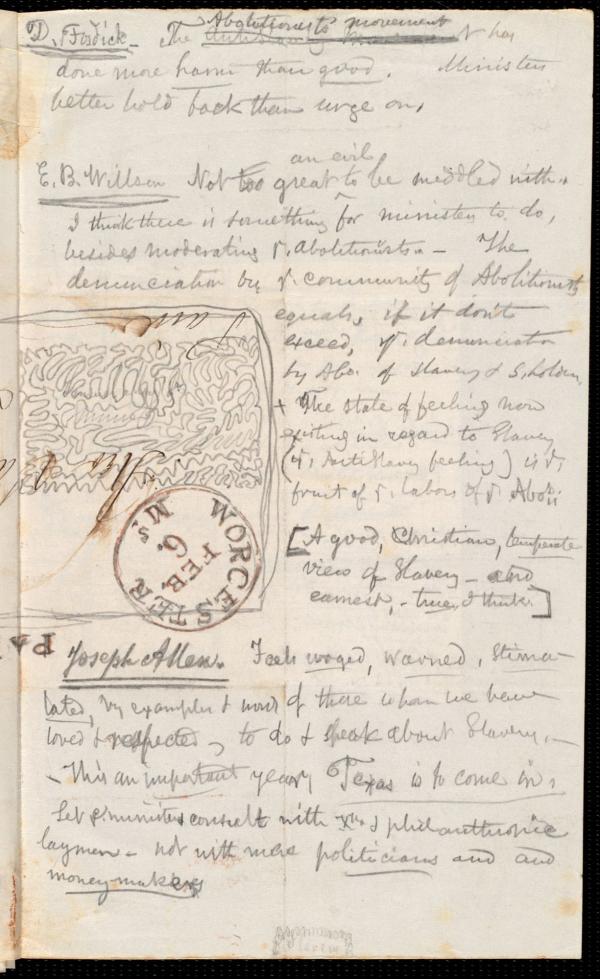 D. Fosdick. The Abolitionists movement has
done more harm than good. Ministers
better hold back than urge on.
E. B. Willson Not too great an evil to be meddled with.
I think there is something for ministers to do,
besides moderating ye. abolitionists. — The
denunciation by ye. community of Abolitionists
equals, if it don't
exceed, ye. denunciation
by Abo. of Slavery & S. holders
+ The state of feeling now
existing in regard to Slavery
(ye. Antislavery feeling) is ye.
fruit of ye. labors of ye. Aboli
[A good, Christian, temperate
view of Slavery — and
earnest, - true, I think.]
WORCESTER Ms.
FEB.
6.
PA
Joseph Allen. Feels urged, warned, stimu-
lated, by examples & words of those whom we have
loved & respected, to do & speak about Slavery. —
- This an important year, Texas is to come in,
Let ye. ministers consult with & philanthropic
laymen — not with mere politicians and and
money-makers